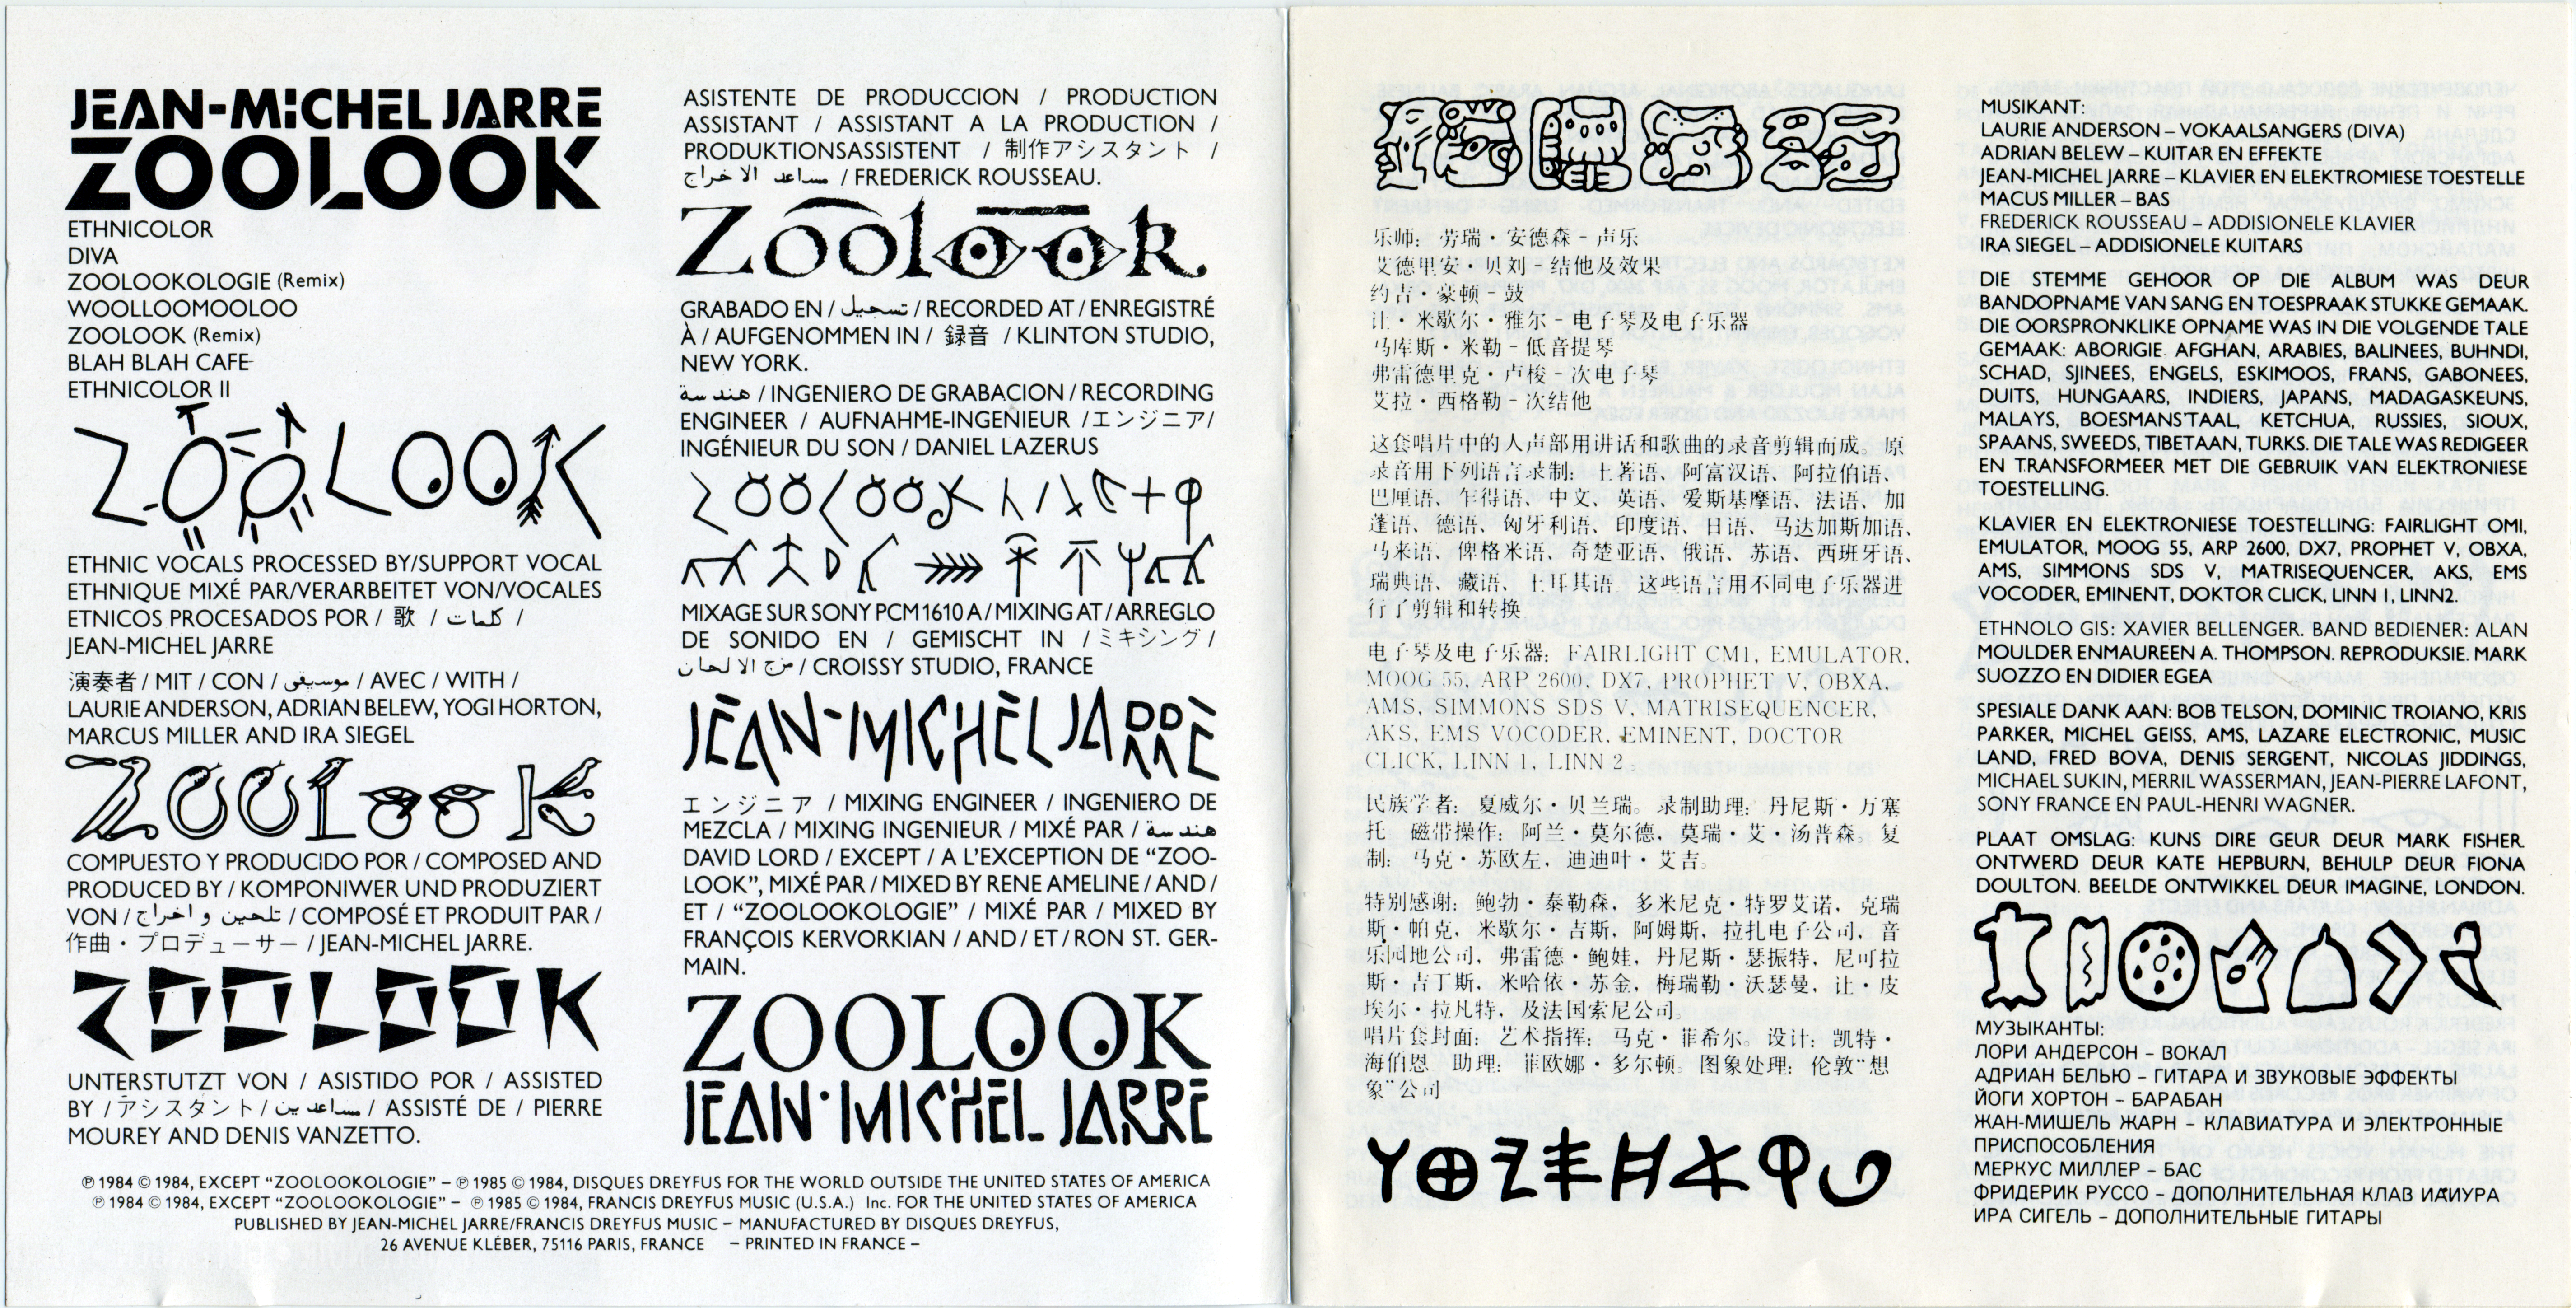 JEAN-MICHEL JARRE
ZOOLOOK
ETHNICOLOR
DIVA
ZOOLOOKOLOGIE (Remix)
WOOLLOOMOOLOO
ZOOLOOK (Remix)
BLAH BLAH CAFE
ETHNICOLOR II
ZOOLOOK
ETHNIC VOCALS PROCESSED BY/SUPPORT VOCAL
ETHNIQUE MIXÉ PAR/VERARBEITET VON/VOCALES
ETNICOS PROCESADOS POR / 歌 / كلمات /
JEAN-MICHEL JARRE
演奏者 / MIT / CON / موسيقى / AVEC / WITH /
LAURIE ANDERSON, ADRIAN BELEW, YOGI HORTON,
MARCUS MILLER AND IRA SIEGEL
ZOOLOOK
COMPUESTO Y PRODUCIDO POR / COMPOSED AND
PRODUCED BY / KOMPONIWER UND PRODUZIERT
VON / تلحين و اخراج / COMPOSÉ ET PRODUIT PAR /
作曲・プロデューサー / JEAN-MICHEL JARRE.
ZOOLOOK
UNTERSTUTZT VON / ASISTIDO POR / ASSISTED
BY / アシスタント / مساعدين / ASSISTÉ DE / PIERRE
MOUREY AND DENIS VANZETTO.
ASISTENTE DE PRODUCCION / PRODUCTION
ASSISTANT / ASSISTANT A LA PRODUCTION /
PRODUKTIONSASSISTENT / 制作アシスタント /
مساعد الاخراج / FREDERICK ROUSSEAU.
Zoolook
GRABADO EN / تسجيل / RECORDED AT / ENREGISTRÉ
À / AUFGENOMMEN IN / 録音 / KLINTON STUDIO,
NEW YORK.
هندسة / INGENIERO DE GRABACION / RECORDING
ENGINEER / AUFNAHME-INGENIEUR / エンジニア/
INGÉNIEUR DU SON / DANIEL LAZERUS
ZOOLOOK
MIXAGE SUR SONY PCM 1610 A / MIXING AT / ARREGLO
DE SONIDO EN / GEMISCHT IN / ミキシング /
مزج الالحان / CROISSY STUDIO, FRANCE
JEAN-MICHEL JARRE
エンジニア / MIXING ENGINEER / INGENIERO DE
MEZCLA / MIXING INGENIEUR / MIXÉ PAR / هندسة
DAVID LORD / EXCEPT / A L'EXCEPTION DE "ZOO-
LOOK", MIXÉ PAR / MIXED BY RENE AMELINE / AND /
ET / "ZOOLOOKOLOGIE" / MIXÉ PAR / MIXED BY
FRANÇOIS KERVORKIAN / AND / ET / RON ST. GER-
MAIN.
ZOOLOOK
JEAN-MICHEL JARRE
℗ 1984 © 1984, EXCEPT "ZOOLOOKOLOGIE" – ℗ 1985 © 1984, DISQUES DREYFUS FOR THE WORLD OUTSIDE THE UNITED STATES OF AMERICA
℗ 1984 © 1984, EXCEPT "ZOOLOOKOLOGIE" – ℗ 1985 © 1984, FRANCIS DREYFUS MUSIC (U.S.A.) Inc. FOR THE UNITED STATES OF AMERICA
PUBLISHED BY JEAN-MICHEL JARRE/FRANCIS DREYFUS MUSIC – MANUFACTURED BY DISQUES DREYFUS,
26 AVENUE KLÉBER, 75116 PARIS, FRANCE – PRINTED IN FRANCE –
乐师: 劳瑞・安德森－声乐
艾德里安・贝刘－结他及效果
约吉・豪顿－鼓
让・米歇尔・雅尔－电子琴及电子乐器
马库斯・米勒－低音提琴
弗雷德里克・卢梭－次电子琴
艾拉・西格勒－次结他
这套唱片中的人声部用讲话和歌曲的录音剪辑而成。原
录音用下列语言录制: 土著语、阿富汉语、阿拉伯语、
巴厘语、乍得语、中文、英语、爱斯基摩语、法语、加
蓬语、德语、匈牙利语、印度语、日语、马达加斯加语、
马来语、俾格米语、奇楚亚语、俄语、苏语、西班牙语、
瑞典语、藏语、土耳其语。这些语言用不同电子乐器进
行了剪辑和转换
电子琴及电子乐器: FAIRLIGHT CM1, EMULATOR,
MOOG 55, ARP 2600, DX7, PROPHET V, OBXA,
AMS, SIMMONS SDS V, MATRISEQUENCER,
AKS, EMS VOCODER, EMINENT, DOCTOR
CLICK, LINN 1, LINN 2。
民族学者: 夏威尔・贝兰瑞。录制助理: 丹尼斯・万塞
托 磁带操作: 阿兰・莫尔德, 莫瑞・艾・汤普森。复
制: 马克・苏欧左, 迪迪叶・艾吉。
特别感谢: 鲍勃・泰勒森, 多米尼克・特罗艾诺, 克瑞
斯・帕克, 米歇尔・吉斯, 阿姆斯, 拉扎电子公司, 音
乐园地公司, 弗雷德・鲍娃, 丹尼斯・瑟振特, 尼可拉
斯・吉丁斯, 米哈依・苏金, 梅瑞勒・沃瑟曼, 让・皮
埃尔・拉凡特, 及法国索尼公司。
唱片套封面: 艺术指挥: 马克・菲希尔。设计: 凯特・
海伯恩 助理: 菲欧娜・多尔顿。图象处理: 伦敦"想
象"公司
MUSIKANT:
LAURIE ANDERSON – VOKAALSANGERS (DIVA)
ADRIAN BELEW – KUITAR EN EFFEKTE
JEAN-MICHEL JARRE – KLAVIER EN ELEKTROMIESE TOESTELLE
MACUS MILLER – BAS
FREDERICK ROUSSEAU – ADDISIONELE KLAVIER
IRA SIEGEL – ADDISIONELE KUITARS
DIE STEMME GEHOOR OP DIE ALBUM WAS DEUR
BANDOPNAME VAN SANG EN TOESPRAAK STUKKE GEMAAK.
DIE OORSPRONKLIKE OPNAME WAS IN DIE VOLGENDE TALE
GEMAAK: ABORIGIE. AFGHAN, ARABIES, BALINEES, BUHNDI,
SCHAD, SJINEES, ENGELS, ESKIMOOS, FRANS, GABONEES,
DUITS, HUNGAARS, INDIERS, JAPANS, MADAGASKEUNS,
MALAYS, BOESMANS'TAAL, KETCHUA, RUSSIES, SIOUX,
SPAANS, SWEEDS, TIBETAAN, TURKS. DIE TALE WAS REDIGEER
EN TRANSFORMEER MET DIE GEBRUIK VAN ELEKTRONIESE
TOESTELLING.
KLAVIER EN ELEKTRONIESE TOESTELLING: FAIRLIGHT OMI,
EMULATOR, MOOG 55, ARP 2600, DX7, PROPHET V, OBXA,
AMS, SIMMONS SDS V, MATRISEQUENCER, AKS, EMS
VOCODER, EMINENT, DOKTOR CLICK, LINN 1, LINN2.
ETHNOLO GIS: XAVIER BELLENGER. BAND BEDIENER: ALAN
MOULDER ENMAUREEN A. THOMPSON. REPRODUKSIE. MARK
SUOZZO EN DIDIER EGEA
SPESIALE DANK AAN: BOB TELSON, DOMINIC TROIANO, KRIS
PARKER, MICHEL GEISS, AMS, LAZARE ELECTRONIC, MUSIC
LAND, FRED BOVA, DENIS SERGENT, NICOLAS JIDDINGS,
MICHAEL SUKIN, MERRIL WASSERMAN, JEAN-PIERRE LAFONT,
SONY FRANCE EN PAUL-HENRI WAGNER.
PLAAT OMSLAG: KUNS DIRE GEUR DEUR MARK FISHER.
ONTWERD DEUR KATE HEPBURN, BEHULP DEUR FIONA
DOULTON. BEELDE ONTWIKKEL DEUR IMAGINE, LONDON.
МУЗЫКАНТЫ:
ЛОРИ АНДЕРСОН – ВОКАЛ
АДРИАН БЕЛЬЮ – ГИТАРА И ЗВУКОВЫЕ ЭФФЕКТЫ
ЙОГИ ХОРТОН – БАРАБАН
ЖАН-МИШЕЛЬ ЖАРН – КЛАВИАТУРА И ЭЛЕКТРОННЫЕ
ПРИСПОСОБЛЕНИЯ
МЕРКУС МИЛЛЕР – БАС
ФРИДЕРИК РУССО – ДОПОЛНИТЕЛЬНАЯ КЛАВ
ИРА СИГЕЛЬ – ДОПОЛНИТЕЛЬНЫЕ ГИТАРЫ